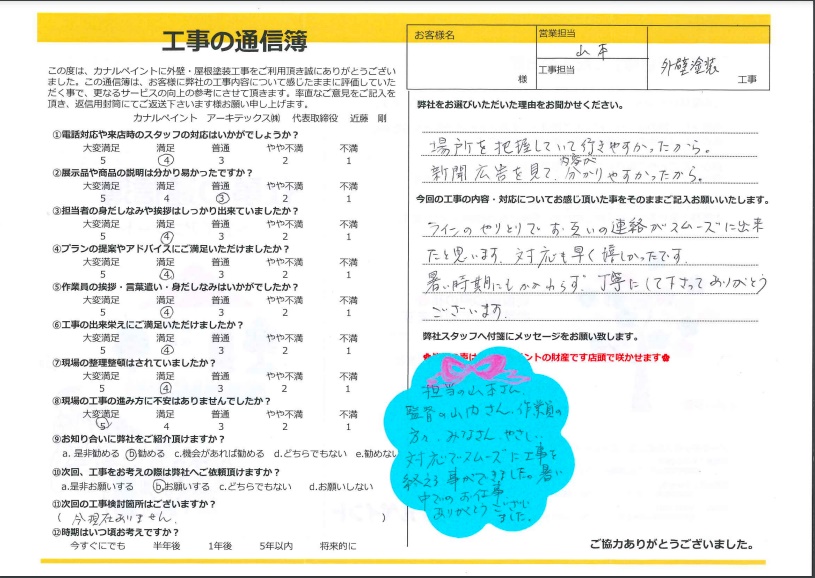 工事の通信簿
この度は、カナルペイントに外壁・屋根塗装工事をご利用頂き誠にありがとうござい
ました。この通信簿は、お客様に弊社の工事内容について感じたままに評価していた
だく事で、更なるサービスの向上の参考にさせて頂きます。率直なご意見をご記入を
頂き、返信用封筒にてご返送下さいます様お願い申し上げます。
カナルペイント アーキテックス㈱ 代表取締役 近藤 剛
①電話対応や来店時のスタッフの対応はいかがでしょうか?
大変満足 満足 普通 やや不満 不満
5 4 3 2 1
②展示品や商品の説明は分かり易かったですか?
大変満足 満足 普通 やや不満 不満
5 4 3 2 1
③担当者の身だしなみや挨拶はしっかり出来ていましたか?
大変満足 満足 普通 やや不満 不満
5 4 3 2 1
④プランの提案やアドバイスにご満足いただけましたか?
大変満足 満足 普通 やや不満 不満
5 4 3 2 1
⑤作業員の挨拶・言葉遣い・身だしなみはいかがでしたか?
大変満足 満足 普通 やや不満 不満
5 4 3 2 1
⑥工事の出来栄えにご満足いただけましたか?
大変満足 満足 普通 やや不満 不満
5 4 3 2 1
⑦現場の整理整頓はされていましたか?
大変満足 満足 普通 やや不満 不満
5 4 3 2 1
⑧現場の工事の進み方に不安はありませんでしたか?
大変満足 満足 普通 やや不満 不満
5 4 3 2 1
⑨お知り合いに弊社をご紹介頂けますか?
a. 是非勧める b勧める c.機会があれば勧める d.どちらでもない e.勧めない
⑩次回、工事をお考えの際は弊社へご依頼頂けますか?
a.是非お願いする b.お願いする c.どちらでもない d.お願いしない
⑪次回の工事検討箇所はございますか?
( 今現在ありません。 )
⑫時期はいつ頃お考えですか?
今すぐにでも 半年後 1年後 5年以内 将来的に
お客様名
様
営業担当
山本
工事担当
外壁塗装
工事
弊社をお選びいただいた理由をお聞かせください。
場所を把握していて行きやすかったから。
新聞広告を見て、内容が分かりやすかったから。
今回の工事の内容・対応についてお感じ頂いた事をそのままご記入お願いいたします。
ラインのやりとりでお互いの連絡がスムーズに出来
たと思います。対応も早く嬉しかったです。
暑い時期にもかかわらず、丁寧にして下さってありがとう
ございます。
弊社スタッフへ付箋にメッセージをお願い致します。
の財産です店頭で咲かせます
担当の山本さん、
監督の山内さん、作業員の
方々、みなさん、やさしい
対応でスムーズに工事を
終える事ができました。暑い
中でのお仕事
ありがとうござい
ました。
ご協力ありがとうございました。